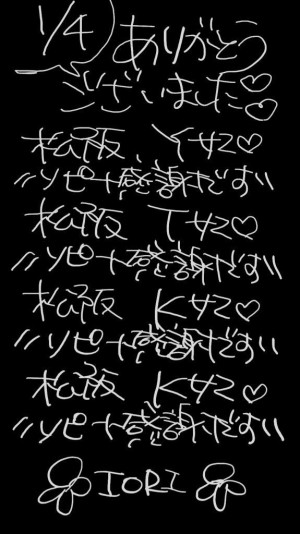 1/4 ありがとう
ございました♡♡
松阪、Yサン♡
〃リピート感謝だす〃
松阪 Tサン♡
〃リピート感謝だす〃
松阪 Kサン♡
〃リピート感謝だす〃
松阪 Kサン♡
〃リピート感謝だす〃
IORI